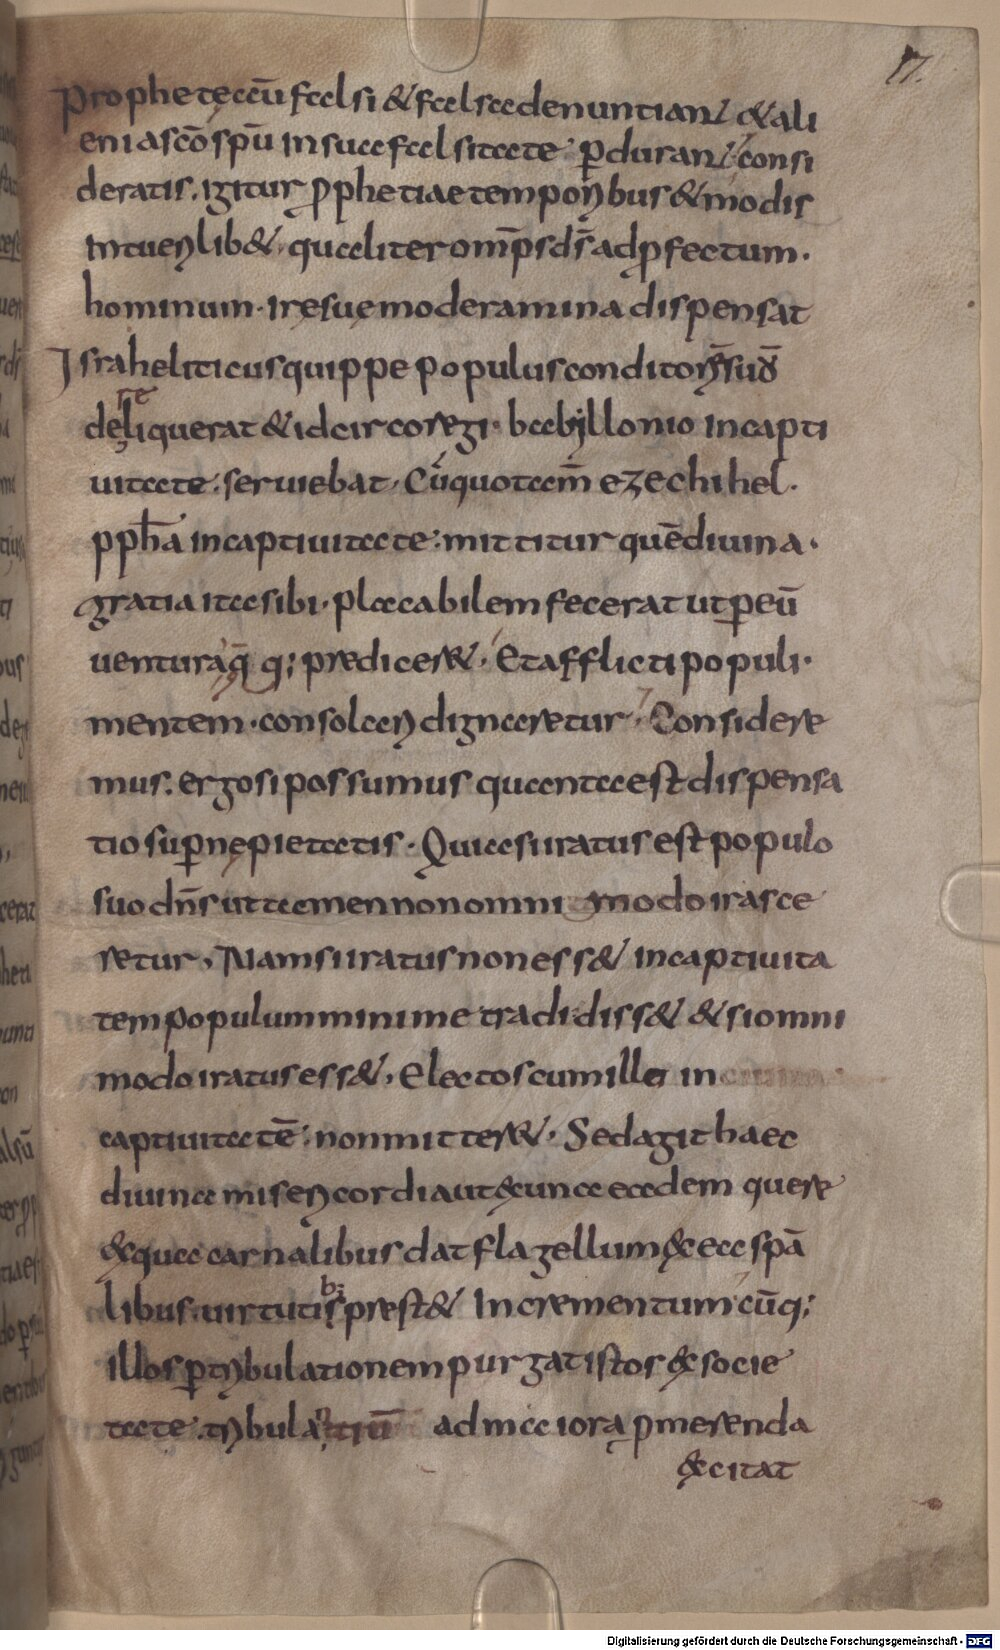 17.
Prophetę cū falsi & falsa denuntiant & ali
eni a scō spū in sua falsitate p̱durant consi
deratis. igitur ꝓphetiae temporibus & modis
intueri lib&. qualiter omp̄s ds̄ ad ꝓfectum.
hominum. iręsuę moderamina dispensat
Israheliticus quippe populus conditorē suū
re
deliquerat & idcirco regi. babyllonio in capti
uitate. seruiebat. Cū quo tam̄ ezechihel.
ppha in captiuitate. mittitur quē diuina.
gratia ita sibi. placabilem fecerat ut p̱ eū
uentura q̄q; predicer&. Et afflicti populi.
mentem. consolari dignaretur. Considere
mus. ergo si possumus quanta est dispensa
tio sup̱nę pietatis. Qui a si iratus est populo
suo dn̄s ut tamen non omni modo irasce
retur. Nam si iratus non ess& in captiuita
tem populum minime tradidiss& & si omni
modo iratus ess&. Electos cum illo in
captiuitatē. non mitter&. Sed agit haec
diuina misericordia ut &una eademquere
&qua carnalibus dat flagellum &ea spā
b;
libus uirtutis prest& Incrementum cūq;
illos p̱ tribulationem purgat istos &socie
tate. tribulantiū ad maiora p̱merenda
&citat
Digitalisierung gefördert durch die Deutsche Forschungsgemeinschaft - DFG